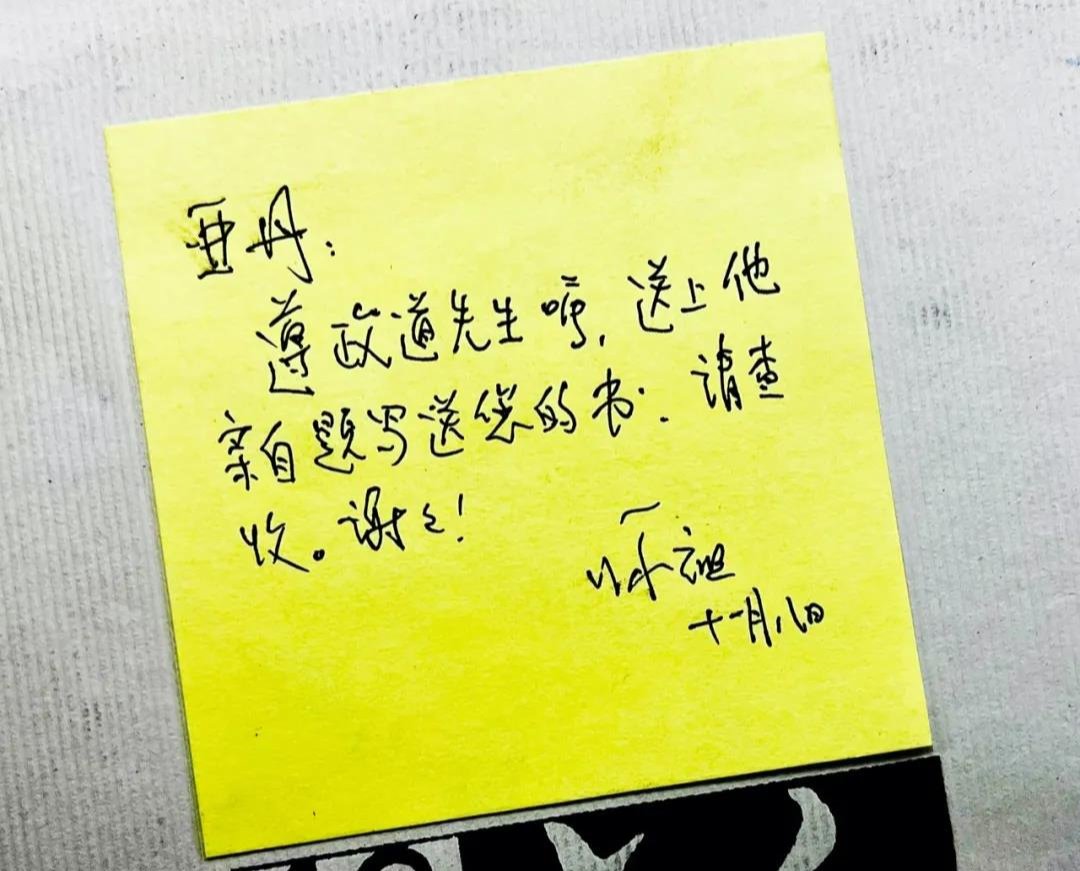 亚丹：
遵政道先生嘱，送上他
亲自题写送您的书．请查
收。谢々！
师祖
十一月八日